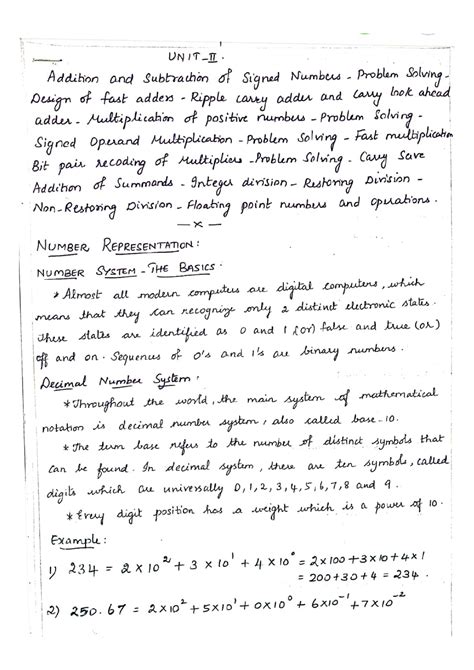 UNIT-II.
Addition and Subtraction of Signed Numbers - Problem Solving -
Design of fast adders - Ripple carry adder and Carry look ahead
adder - Multiplication of positive numbers - Problem Solving -
Signed Operand Multiplication - Problem Solving - Fast multiplication
Bit pair recoding of Multipliers - Problem Solving - Carry Save
Addition of Summands - Integer division - Restoring Division -
Non-Restoring Division - Floating point numbers and operations.
—x—
NUMBER REPRESENTATION:
NUMBER SYSTEM - THE BASICS:
* Almost all modern computers are digital computers, which
means that they can recognize only 2 distinct electronic states.
These states are identified as 0 and 1 (or) false and true (or)
off and on. Sequences of 0's and 1's are binary numbers.
Decimal Number System:
* Throughout the world, the main system of mathematical
notation is decimal number system, also called base-10.
* The term base refers to the number of distinct symbols that
can be found. In decimal system, there are ten symbols, called
digits which are universally 0,1,2,3,4,5,6,7,8 and 9.
* Every digit position has a weight which is a power of 10.
Example:
1) 234 = 2×10² + 3×10¹ + 4×10⁰ = 2×100+3×10+4×1
= 200+30+4 = 234.
2) 250.67 = 2×10² + 5×10¹ + 0×10⁰ + 6×10⁻¹ + 7×10⁻²